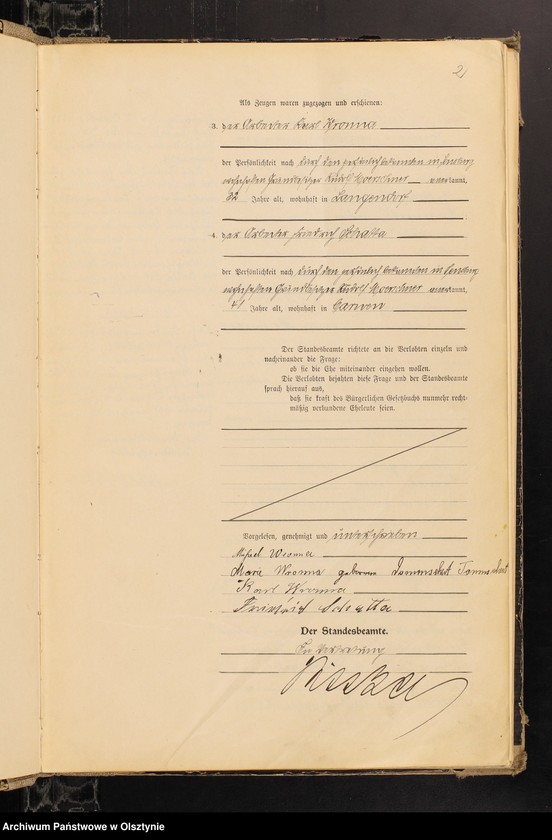 2
Als Zeugen waren zugezogen und erschienen:
3. der Arbeiter Karl Wronna
der Persönlichkeit nach durch den persönlich bekannten in
Grundbesitzer Rudolf anerkannt,
32 Jahre alt, wohnhaft in Langendorf
4. der Arbeiter Friedrich
der Persönlichkeit nach durch den persönlich bekannten in
Grundbesitzer Rudolf anerkannt,
41 Jahre alt, wohnhaft in
Der Standesbeamte richtete an die Verlobten einzeln und
nacheinander die Frage:
ob sie die Ehe miteinander eingehen wollen.
Die Verlobten bejahten diese Frage und der Standesbeamte
sprach hierauf aus,
daß sie kraft des Bürgerlichen Gesetzbuchs nunmehr recht-
mäßig verbundene Eheleute seien.
Vorgelesen, genehmigt und unterschrieben
Michael Wronna
Marie Wronna geborene
Karl Wronna
Friedrich
Der Standesbeamte.
In Vertretung